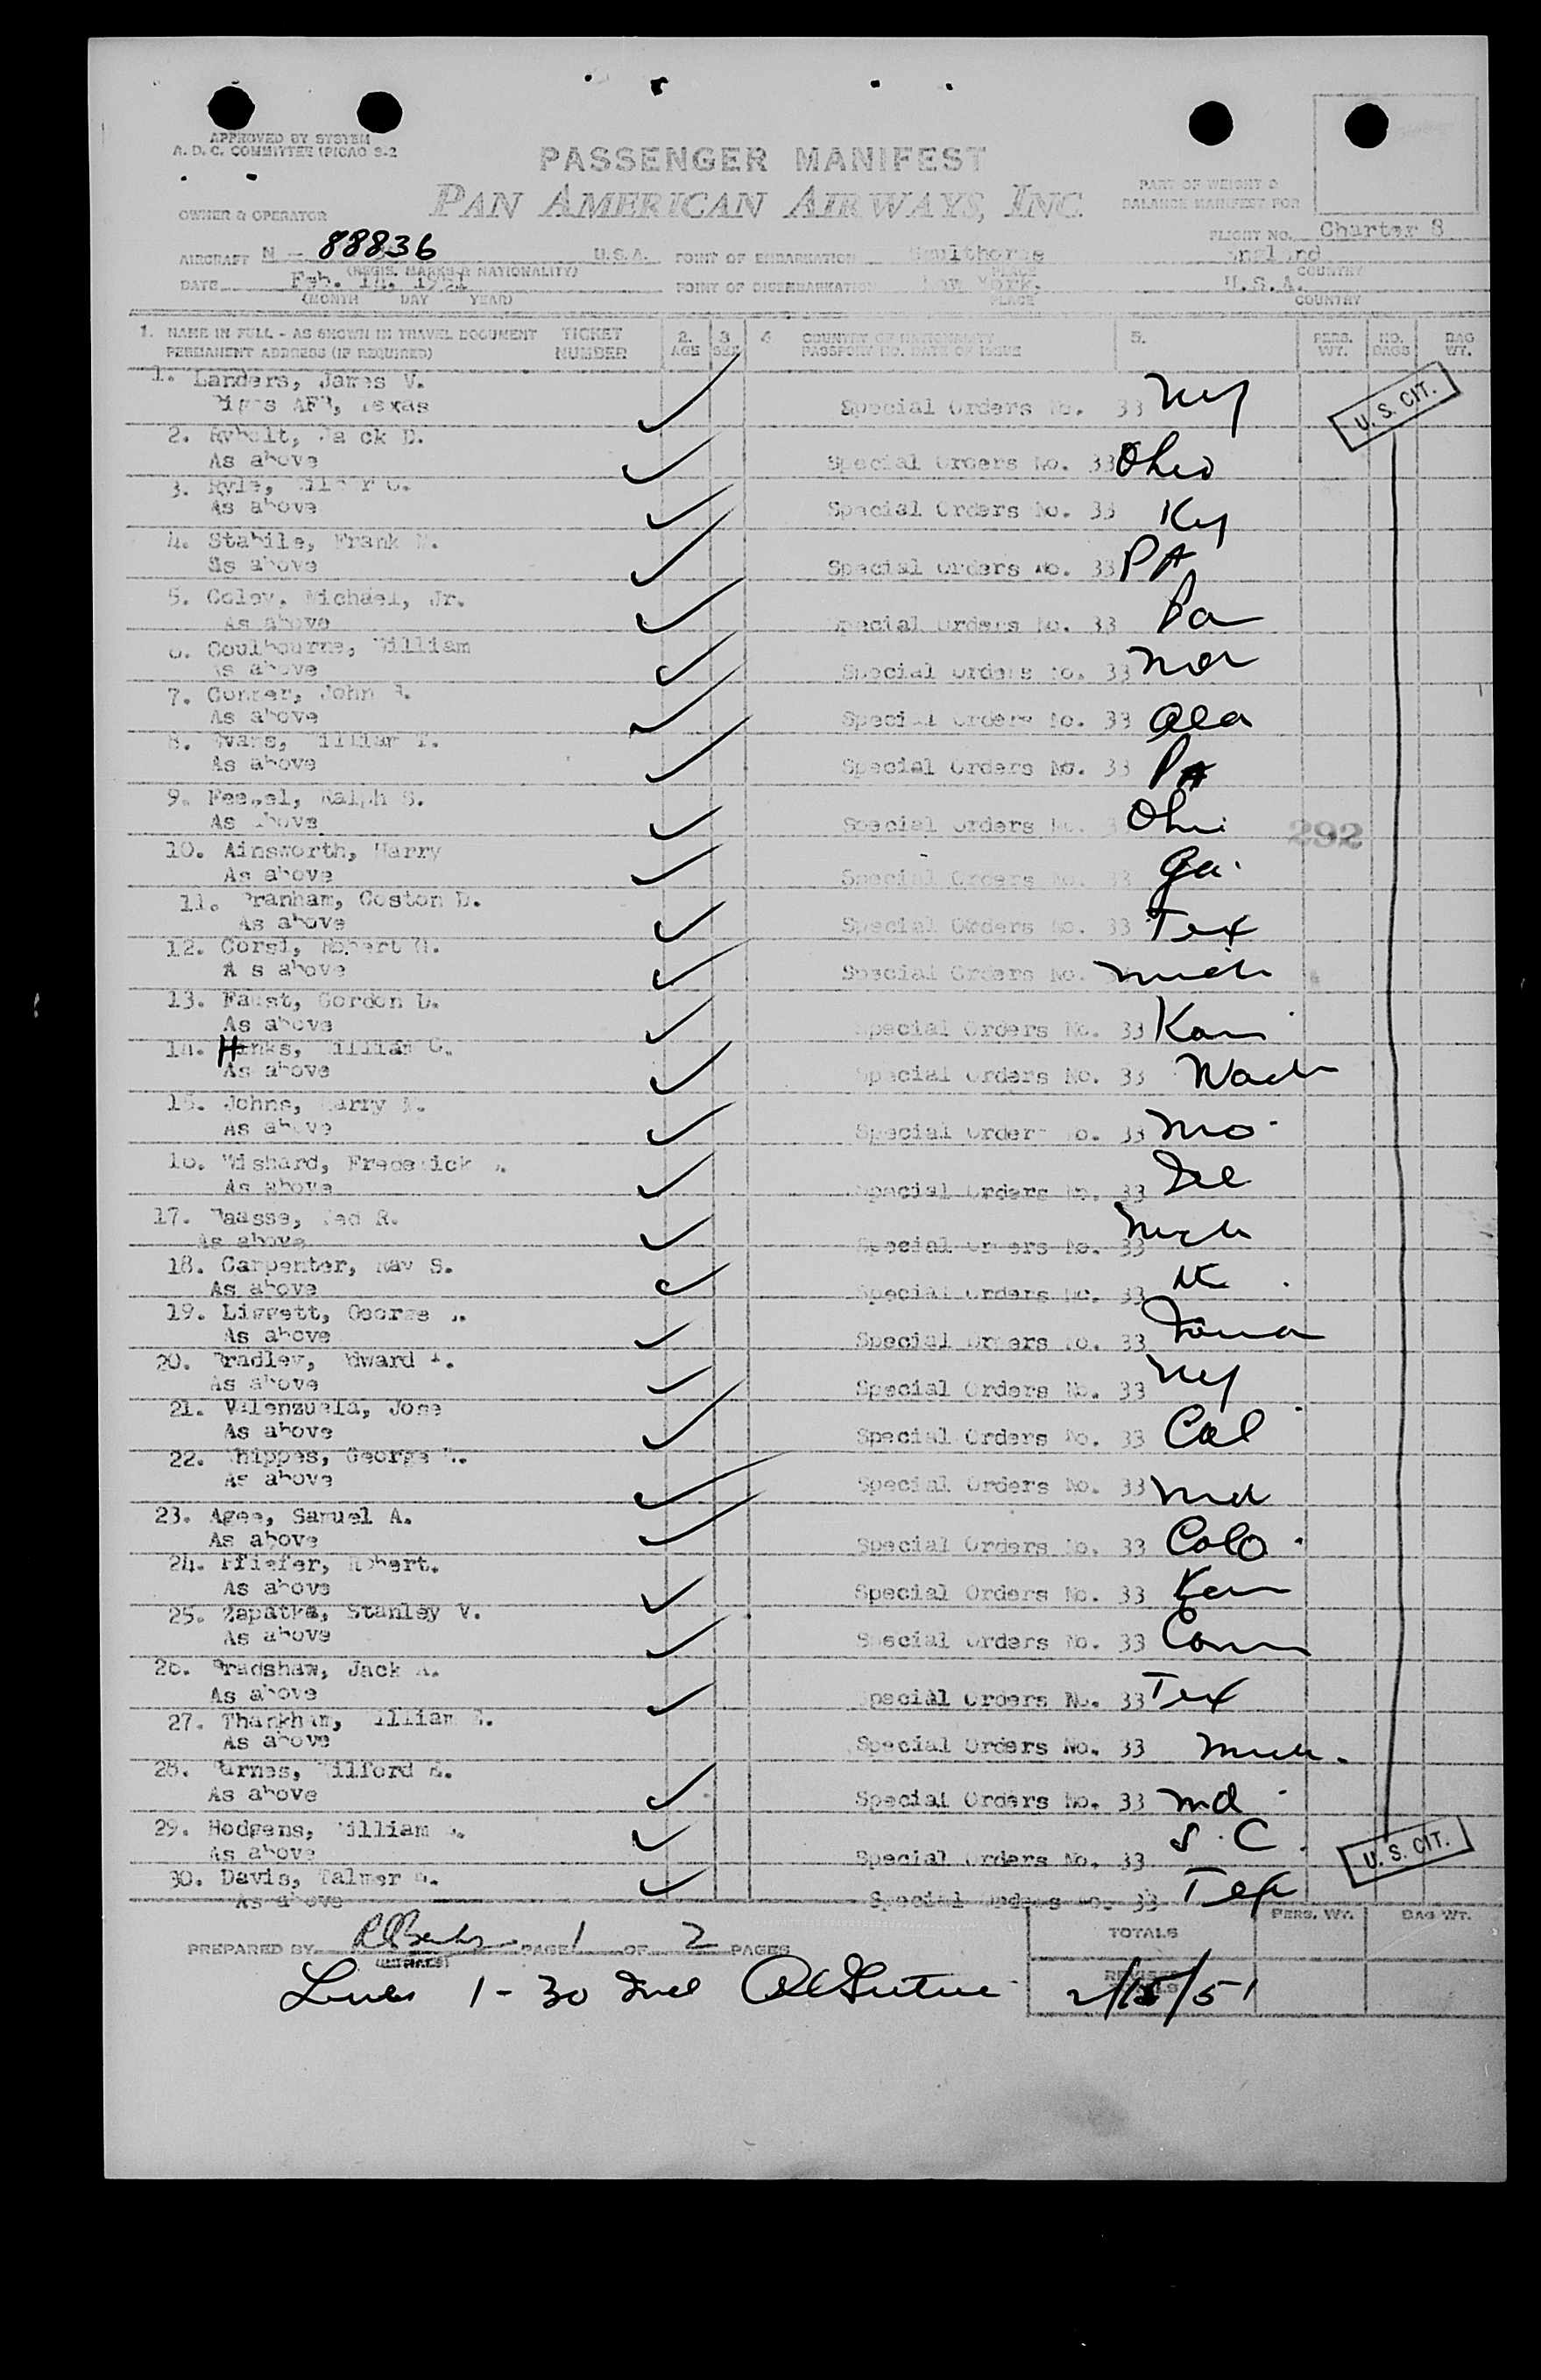 APPROVED BY SYSTEM
A. D. C. COMMITTEE (PICAO S-2
PASSENGER MANIFEST
PAN AMERICAN AIRWAYS, INC.
PART OF WEIGHT &
BALANCE MANIFEST FOR
OWNER & OPERATOR
FLIGHT NO. Charter 8
AIRCRAFT N - 88836 U.S.A. POINT OF EMBARKATION Sculthorpe England
(REGIS. MARKS & NATIONALITY) PLACE COUNTRY
DATE Feb. 14, 1951 POINT OF DISEMBARKATION New York, U.S.A.
(MONTH DAY YEAR) PLACE COUNTRY
1. NAME IN FULL - AS SHOWN IN TRAVEL DOCUMENT TICKET 2. 3 4 COUNTRY OF NATIONALITY 5. PERS. NO. BAG
PERMANENT ADDRESS (IF REQUIRED) NUMBER AGE SEX PASSPORT NO. DATE OF ISSUE WT. BAGS WT.
1. Landers, James V.
AFB, Texas Special Orders No. 33 NY U. S. CIT.
2. Jack D.
As above Special Orders No. 33 Ohio
3. Ryle,
As above Special Orders No. 33 Ky
4. Stabile, Frank
As above Special Orders No. 33 PA
5. Coley, Michael, Jr.
As above Special Orders No. 33 Pa
6. Coulbourne, William
As above Special Orders No. 33
7. John
As above Special Orders No. 33 Ala
8. Evans, William T.
As above Special Orders No. 33 PA
9. Ralph S.
As above Special Orders No. Ohio 292
10. Ainsworth, Harry
As above Special Orders No. 33 Ga.
11. Branham, Coston D.
As above Special Orders No. 33 Tex
12. Corsi, Robert
A s above Special Orders No. Mich
13. Faust, Gordon D.
As above Special Orders No. 33 Kan
14. William
As above Special Orders No. 33 Wash
15. Johns, Harry
As above Special Orders No. 33 Mo
16. Wishard, Frederick
As above Special Orders No. 33 Ill
17. Ted R.
As above Special Orders No. 33 Mich
18. Carpenter, Ray S.
As above Special Orders No. 33
19. Liggett, George
As above Special Orders No. 33 Iowa
20. Bradley, Edward
As above Special Orders No. 33 NY
21. Valenzuela, Jose
As above Special Orders No. 33 Cal
22. Whippes, George
As above Special Orders No. 33 Md
23. Agee, Samuel A.
As above Special Orders No. 33 Colo.
24. Pfiefer, Robert.
As above Special Orders No. 33
25. Zapatka, Stanley V.
As above Special Orders No. 33 Conn
26. Bradshaw, Jack
As above Special Orders No. 33 Tex
27. William
As above Special Orders No. 33 Mich.
28. Wilford
As above Special Orders No. 33 Md
29. Hodgens, William
As above Special Orders No. 33 S. C. U. S. CIT.
30. Davis, Talmer
As above Special Orders No. 33 Tex
PREPARED BY PAGE 1 OF 2 PAGES TOTALS PERS. WT. BAG WT.
(INITIALS)
Lines 1 - 30 Incl 2/15/51